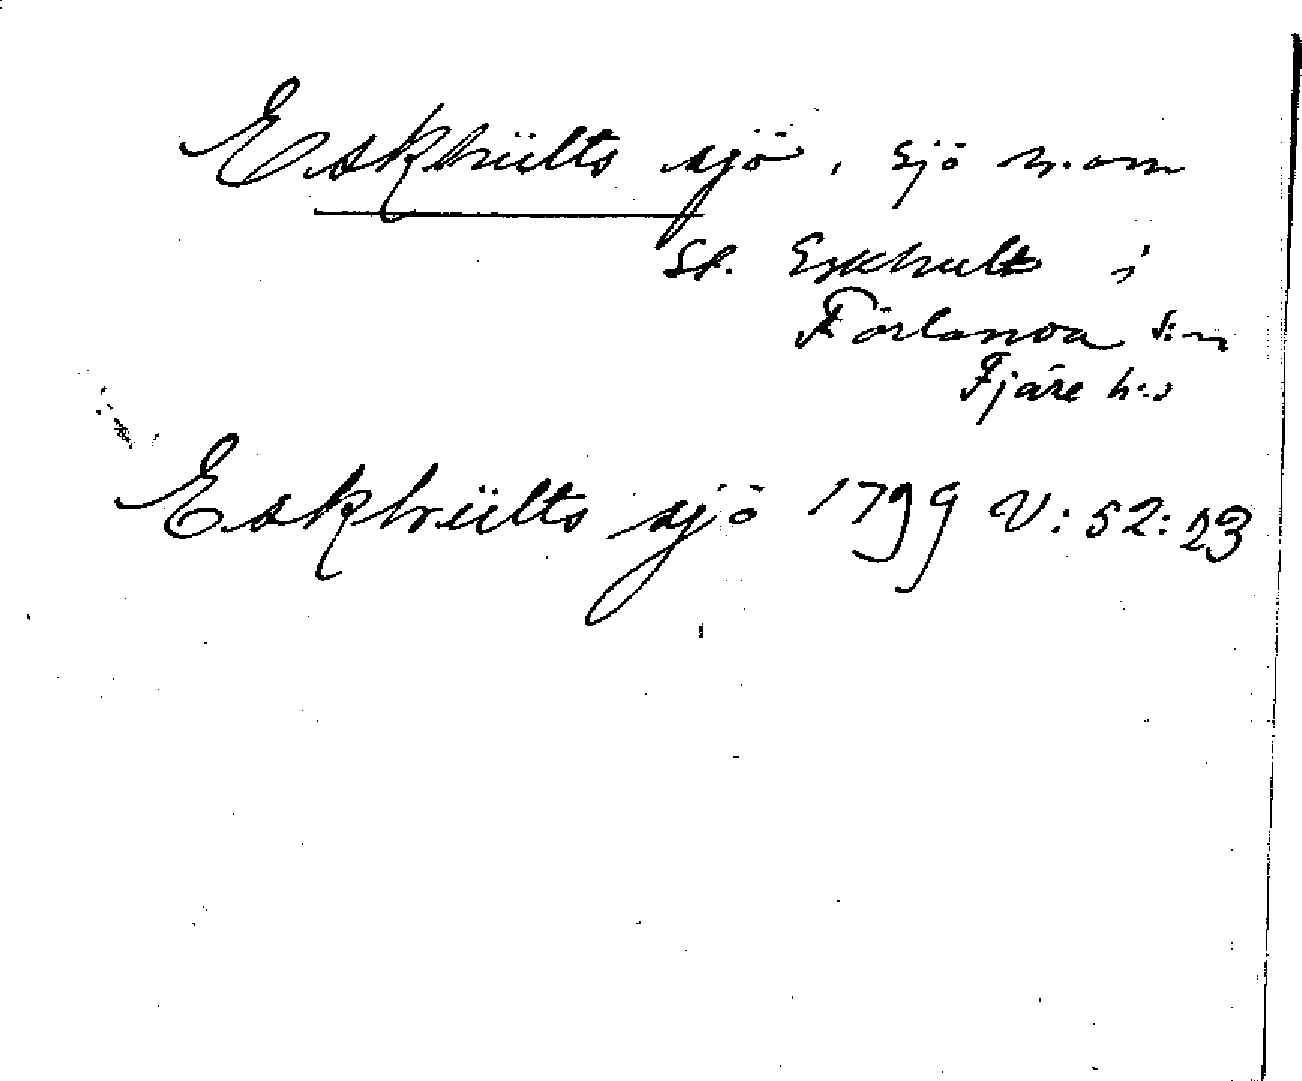 Eskhülts sjö, sjö n.om
St. Eskhult i
Förlanda s:n
Fjäre h:d
Eskhülts sjö 1799 V:52:23